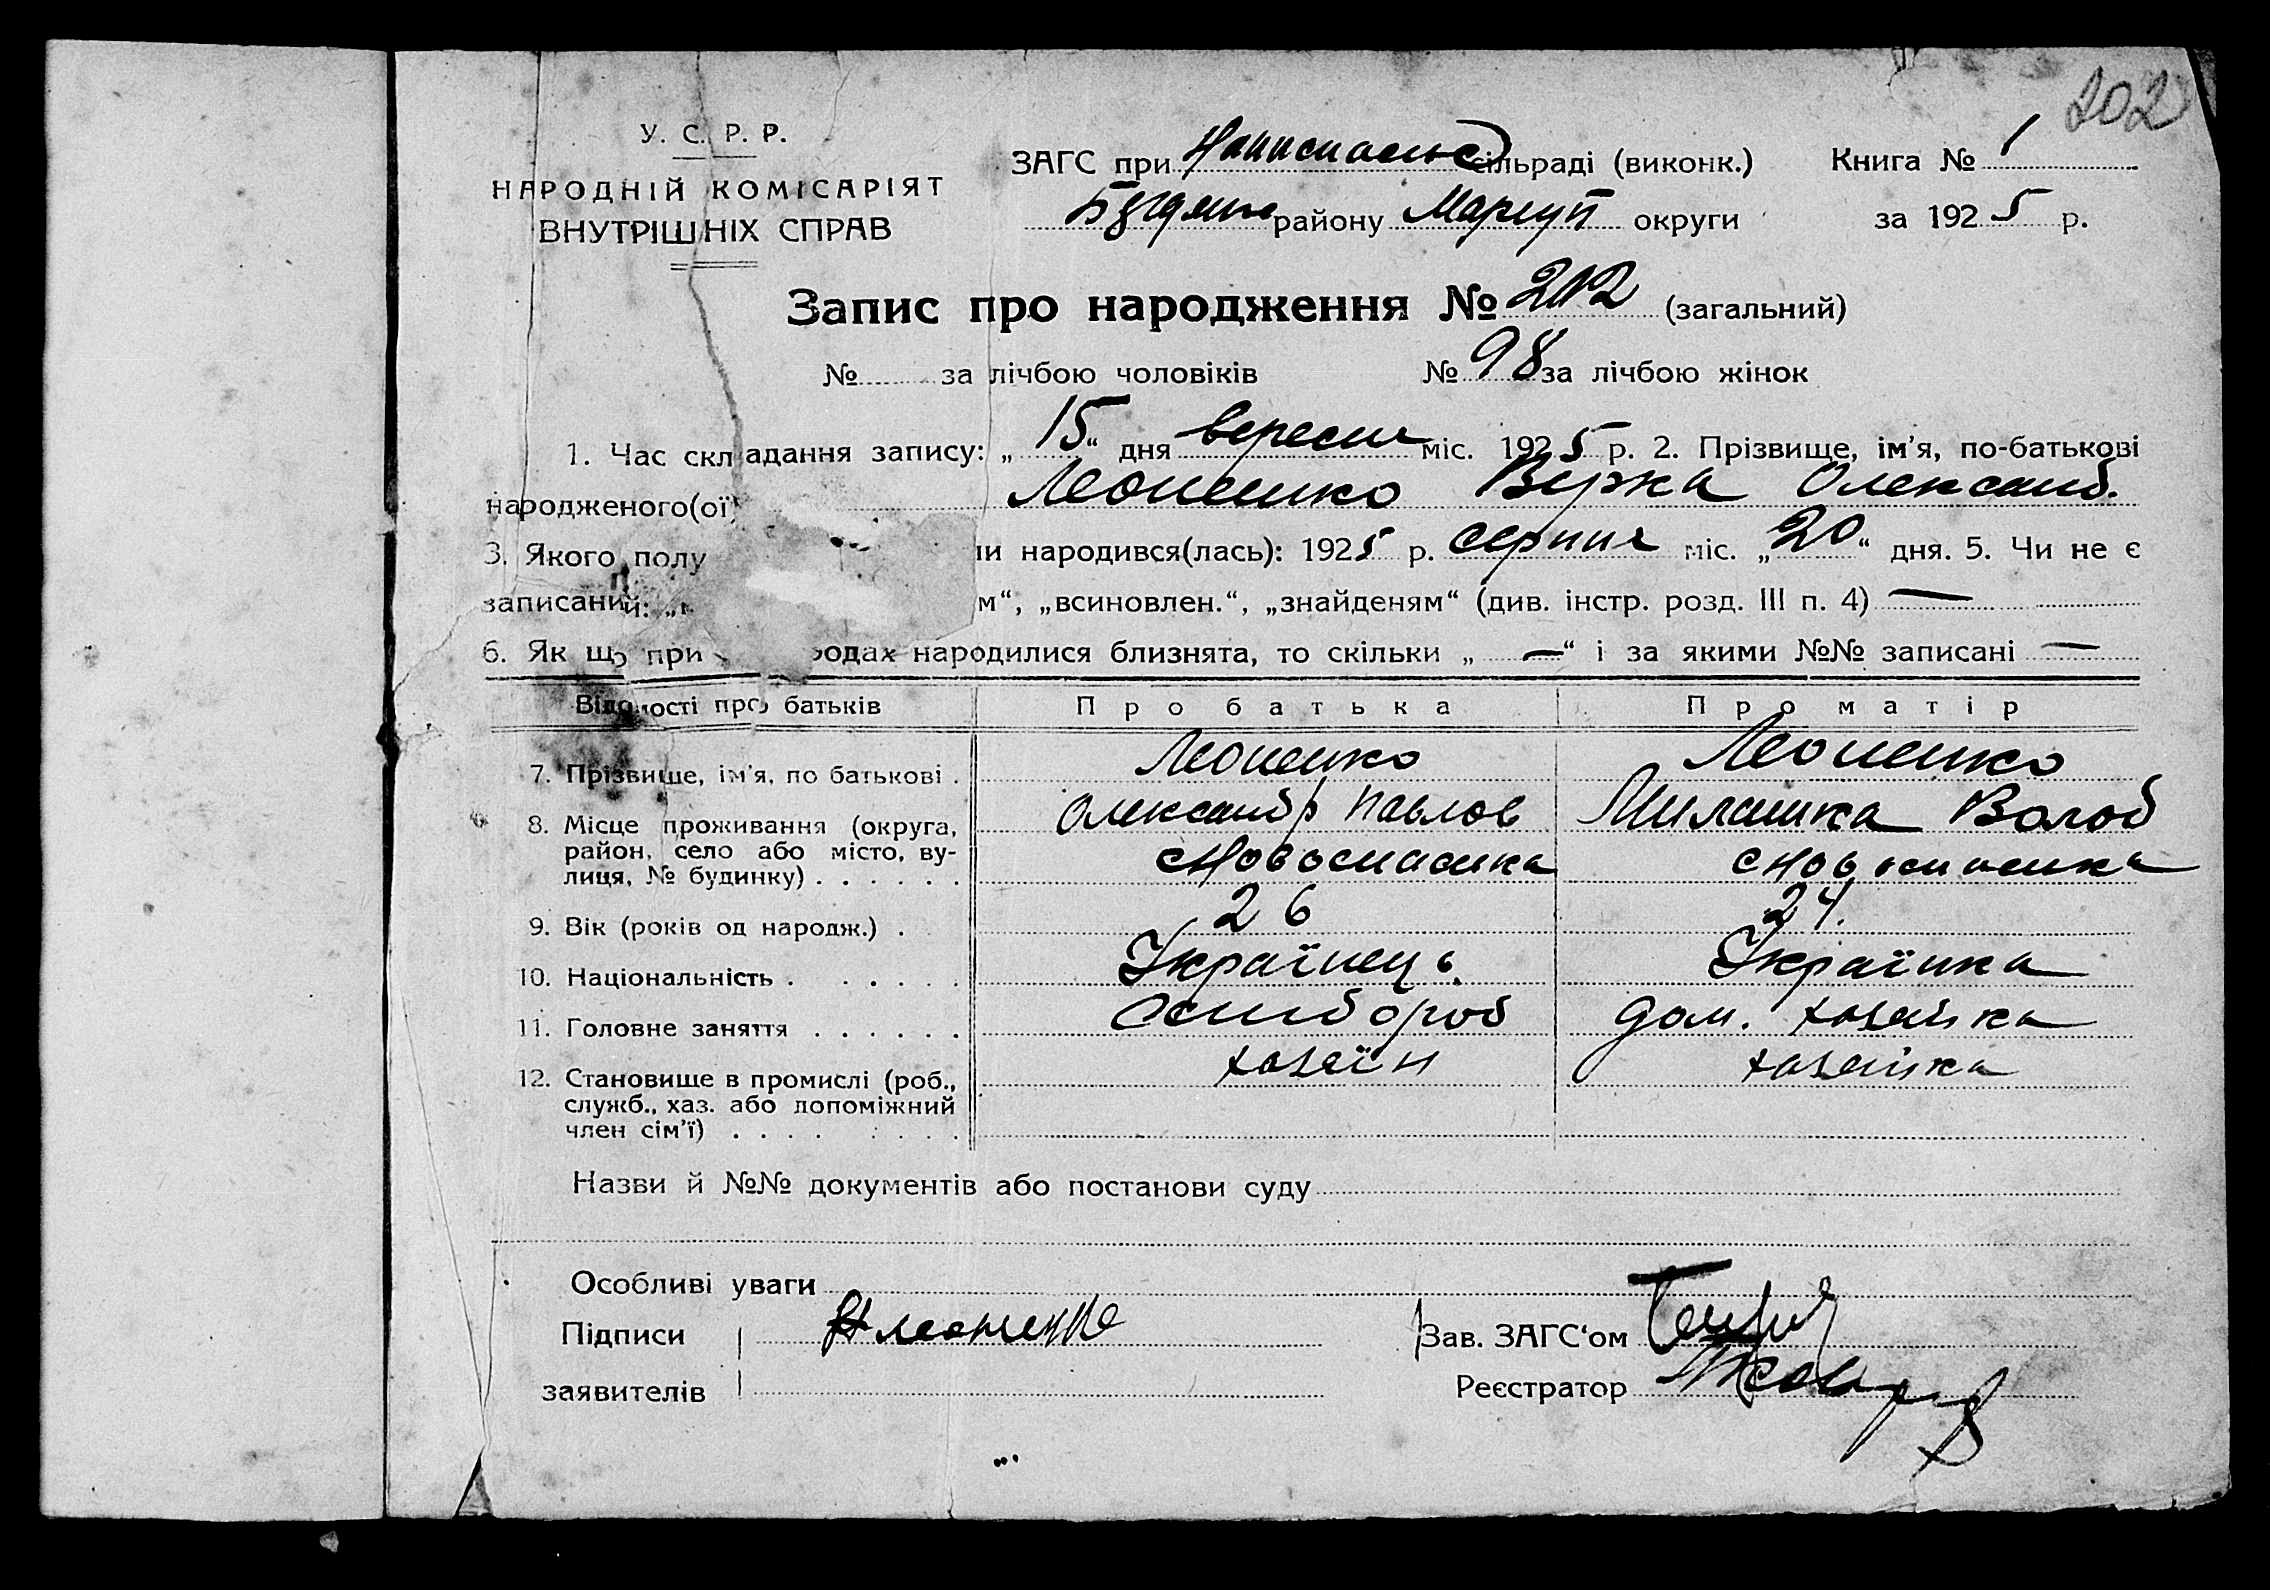 202
У. С. Р. Р.
НАРОДНІЙ КОМІСАРІЯТ
ВНУТРІШНІХ СПРАВ
ЗАГС при сільраді (виконк.) Книга № 1
району Маріуп округи за 1925 р.
Запис про народження № 202 (загальний)
№ за лічбою чоловіків № 98 за лічбою жінок
1. Час складання запису: „15“ дня вересня міс. 1925 р. 2. Прізвище, ім'я, по-батькові
народженого(ої) Леоненко Вірка Олександ.
3. Якого полу ли народився(лась): 1925 р. серпня міс. „20“ дня. 5. Чи не є
записаний: „ м“, „всиновлен.“, „знайденям“ (див. інстр. розд. III п. 4) —
6. Як що при родах народилися близнята, то скільки „—“ і за якими №№ записані —
Відомості про батьків Про батька Про матір
7. Прізвище, ім'я, по батькові . Леоненко Леоненко
Олександр Павлов Милашка Волод
8. Місце проживання (округа,
район, село або місто, ву-
лиця, № будинку) . . . . . . с Новоспасівка с Новоспасівка
9. Вік (років од народж.) . 26 24.
10. Національність . . . . . . Українець Українка
11. Головне заняття . . . . . . хлібороб дом. хазяйка
12. Становище в промислі (роб.,
служб., хаз. або допоміжний
член сім'ї) . . . . . . . . хазяїн хазяйка
Назви й №№ документів або постанови суду
Особливі уваги
Підписи А Леоненко Зав. ЗАГС‘ом
заявителів Реєстратор